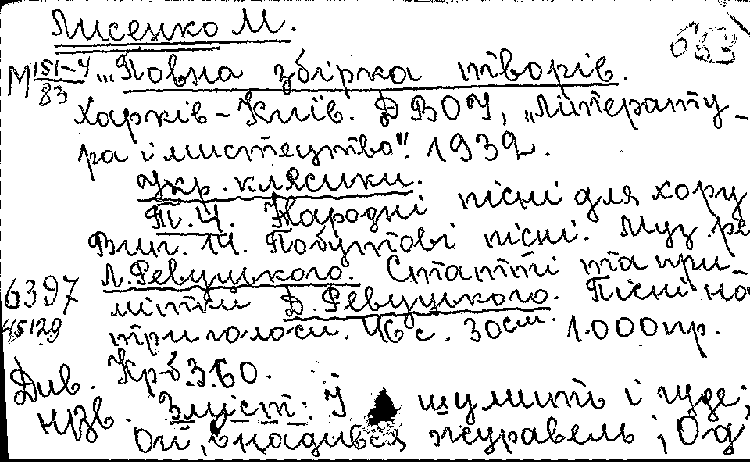 Лисенко М.
М 151-4/83 „Повна збірка творів.
Харків-Київ. ДВОУ, „Літерату-
ра і мистецтво". 1932.
Укр. клясики.
Т. 4. Народні пісні для хору
Вип. 14. Побутові пісні. Муз. ре
Л. Ревуцького. Статті та при-
6397 мітки Д. Ревуцького. Пісні на
45129 три голоси. 46 с. 30 см. 1.000 пр.
Див. Кр б. 3.60.
НЗв. Зміст: І шумить і гуде;
Ой, внадився журавель; Од